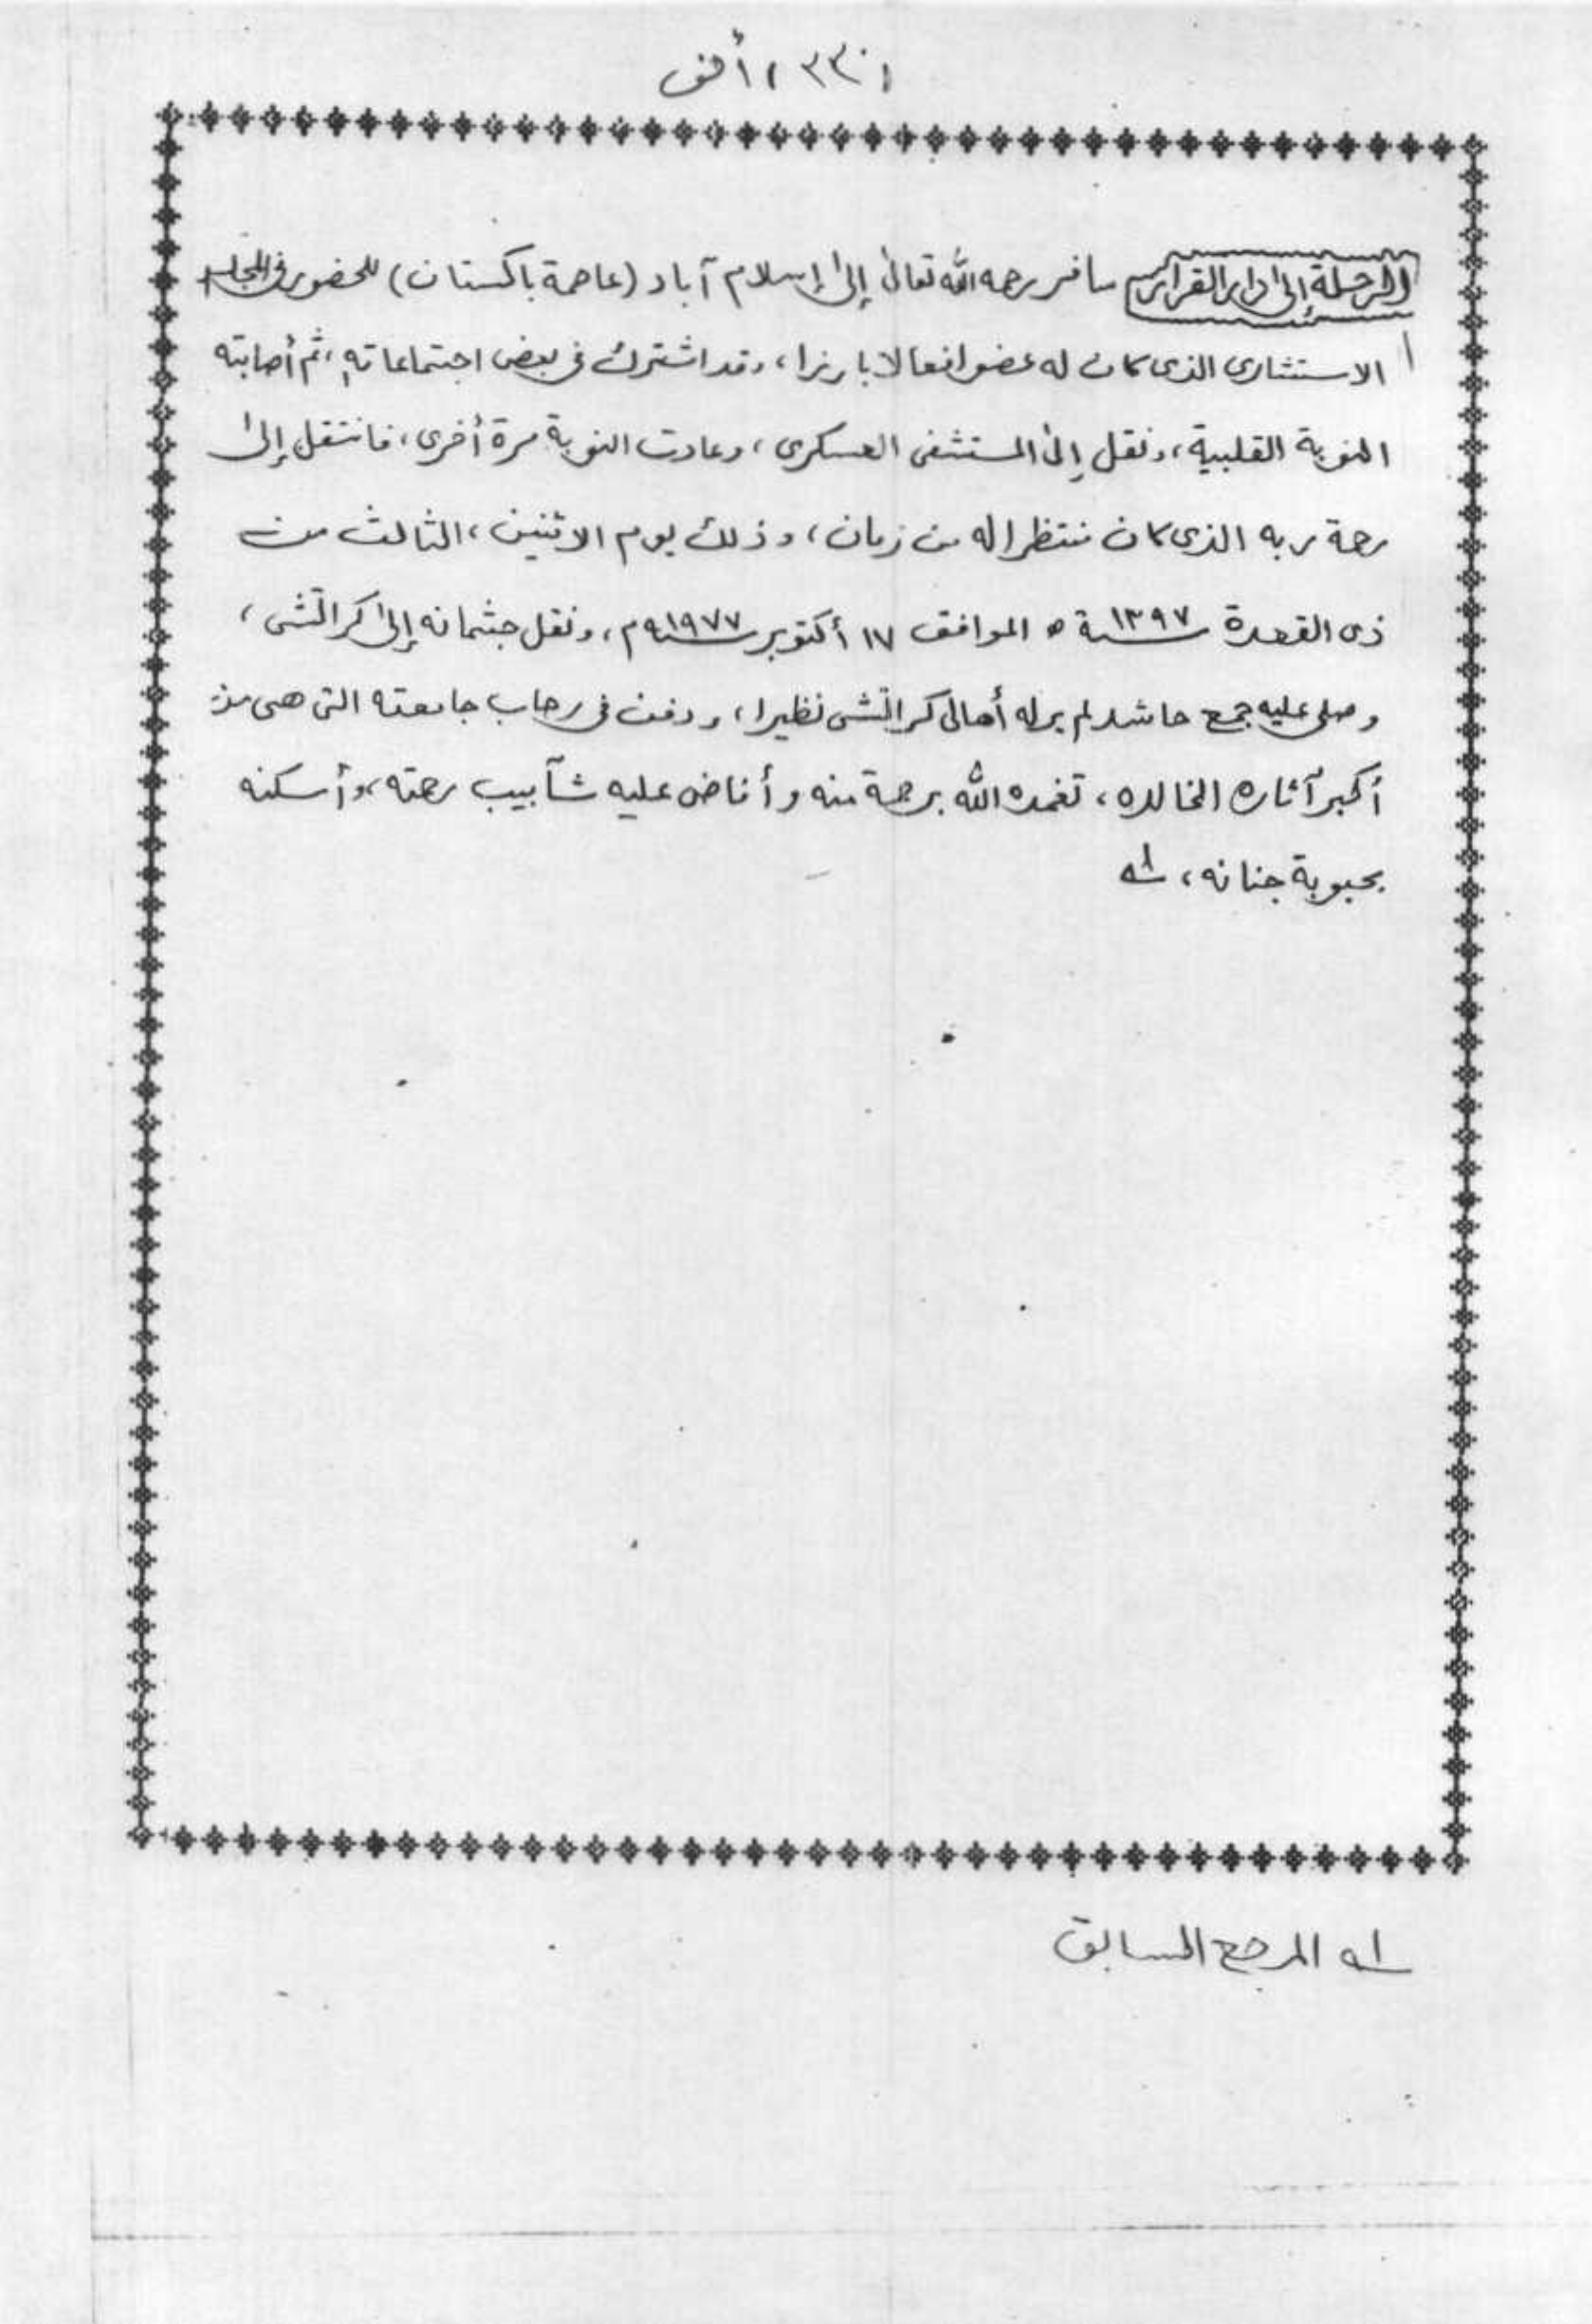 (٣٣٠) ألف
الرحلة إلى دار القرار سافر رحمه الله تعالى إلى إسلام آباد (عاصمة باكستان) للحضور في المجلس
الاستشارى الذى كان له عضوا فعالا بارزا، وقد اشترك فى بعض اجتماعاته، ثم أصابته
النوبة القلبية، ونقل إلى المستشفى العسكرى، وعادت النوبة مرة أخرى، فانتقل إلى
رحمة ربه الذى كان منتظرا له من زمان، وذلك يوم الاثنين، الثالث من
ذى القعدة سنة ١٣٩٧ ه الموافق ١٧ أكتوبر سنة ١٩٧٧م، ونقل جثمانه إلى كراتشى،
وصلى عليه جمع حاشد لم ير له أهالى كراتشى نظيرا، ودفن فى رحاب جامعته التى هى من
أكبر آثاره الخالده، تغمده الله برحمة منه وأفاض عليه شآبيب رحمته، وأسكنه
بحبوبة جنانه، له
له المرجع السابق